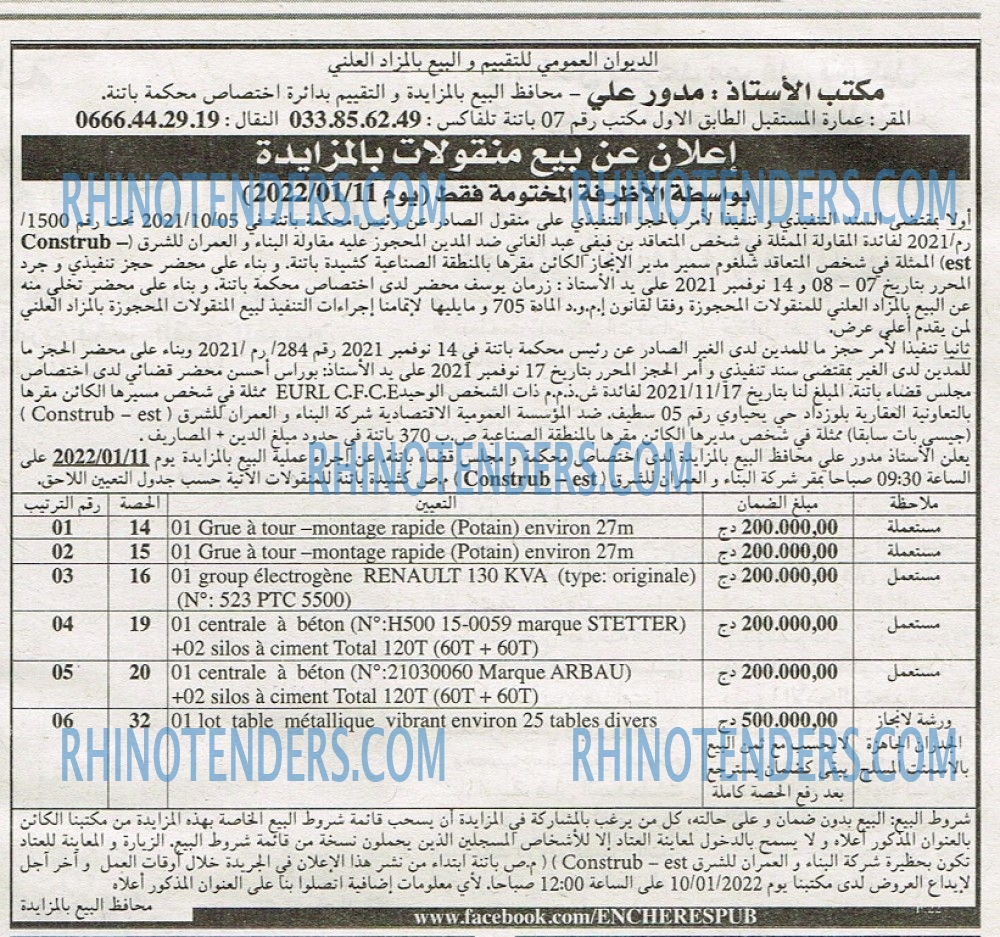 الديوان العمومي للتقييم و البيع بالمزاد العلني
مكتب الأستاذ : مدور علي – محافظ البيع بالمزايدة و التقييم بدائرة اختصاص محكمة باتنة.
المقر : عمارة المستقبل الطابق الاول مكتب رقم 07 باتنة تلفاكس : 033.85.62.49 النقال : 0666.44.29.19
إعلان عن بيع منقولات بالمزايدة
بواسطة الأظرفة المختومة فقط (يوم 2022/01/11)
RHINOTENDERS.COM RHINOTENDERS.COM
أولا بمقتضى السند التنفيذي و تنفيذا لأمر بالحجز التنفيذي على منقول الصادر عن رئيس محكمة باتنة في 2021/10/05 تحت رقم 1500/
رم/2021 لفائدة المقاولة الممثلة في شخص المتعاقد بن فيفي عبد الغاني ضد المدين المحجوز عليه مقاولة البناء و العمران للشرق (Construb –
est) الممثلة في شخص المتعاقد شلغوم سمير مدير الإنجاز الكائن مقرها بالمنطقة الصناعية كشيدة باتنة. و بناء على محضر حجز تنفيذي و جرد
المحرر بتاريخ 07 – 08 و 14 نوفمبر 2021 على يد الأستاذ : زرمان يوسف محضر لدى اختصاص محكمة باتنة. و بناء على محضر تخلي منه
عن البيع بالمزاد العلني للمنقولات المحجوزة وفقا لقانون إ.م.و.د المادة 705 و مايليها لإتمامنا إجراءات التنفيذ لبيع المنقولات المحجوزة بالمزاد العلني
لمن يقدم أعلى عرض.
ثانيا تنفيذا لأمر حجز ما للمدين لدى الغير الصادر عن رئيس محكمة باتنة في 14 نوفمبر 2021 رقم 284/ رم /2021 وبناء على محضر الحجز ما
للمدين لدى الغير بمقتضى سند تنفيذي و أمر الحجز المحرر بتاريخ 17 نوفمبر 2021 على يد الأستاذ: بوراس أحسن محضر قضائي لدى اختصاص
مجلس قضاء باتنة. المبلغ لنا بتاريخ 2021/11/17 لفائدة ش.ذ.م.م ذات الشخص الوحيد EURL C.F.C.E ممثلة في شخص مسيرها الكائن مقرها
بالتعاونية العقارية بلوزداد حي يحياوي رقم 05 سطيف. ضد المؤسسة العمومية الاقتصادية شركة البناء و العمران للشرق ( Construb – est )
(جيسي بات سابقا) ممثلة في شخص مديرها الكائن مقرها بالمنطقة الصناعية ص ب 370 باتنة في حدود مبلغ الدين + المصاريف .
يعلن الأستاذ مدور علي محافظ البيع بالمزايدة لدى اختصاص محكمة و مجلس قضاء باتنة. عن إجراء عملية البيع بالمزايدة يوم 2022/01/11 على
RHINOTENDERS.COM
الساعة 09:30 صباحا بمقر شركة البناء و العمران للشرق (Construb – est ) م.ص كشيدة باتنة للمنقولات الآتية حسب جدول التعيين اللاحق.
رقم الترتيب الحصة التعيين مبلغ الضمان ملاحظة
01 14 01 Grue à tour –montage rapide (Potain) environ 27m 200.000,00 دج مستعملة
02 15 01 Grue à tour –montage rapide (Potain) environ 27m 200.000,00 دج مستعملة
03 16 01 group électrogène RENAULT 130 KVA (type: originale) 200.000,00 دج مستعمل
(N°: 523 PTC 5500)
04 19 01 centrale à béton (N°:H500 15-0059 marque STETTER) 200.000,00 دج مستعمل
+02 silos à ciment Total 120T (60T + 60T)
05 20 01 centrale à béton (N°:21030060 Marque ARBAU) 200.000,00 دج مستعمل
+02 silos à ciment Total 120T (60T + 60T)
06 32 01 lot table métallique vibrant environ 25 tables divers 500.000,00 دج ورشة لانجاز
لايحسب مع ثمن البيع الجدران الجاهزة
يبقى كضمان يسترجع بالأسمنت المسلح
بعد رفع الحصة كاملة
RHINOTENDERS.COM RHINOTENDERS.COM
شروط البيع: البيع بدون ضمان و على حالته، كل من يرغب بالمشاركة في المزايدة أن يسحب قائمة شروط البيع الخاصة بهذه المزايدة من مكتبنا الكائن
بالعنوان المذكور أعلاه و لا يسمح بالدخول لمعاينة العتاد إلا للأشخاص المسجلين الذين يحملون نسخة من قائمة شروط البيع. الزيارة و المعاينة للعتاد
تكون بحظيرة شركة البناء و العمران للشرق Construb – est ) ) م.ص باتنة ابتداء من نشر هذا الإعلان في الجريدة خلال أوقات العمل و آخر أجل
لإيداع العروض لدى مكتبنا يوم 10/01/2022 على الساعة 12:00 صباحا. لأي معلومات إضافية اتصلوا بنا على العنوان المذكور أعلاه
محافظ البيع بالمزايدة
www.facebook.com/ENCHERESPUB